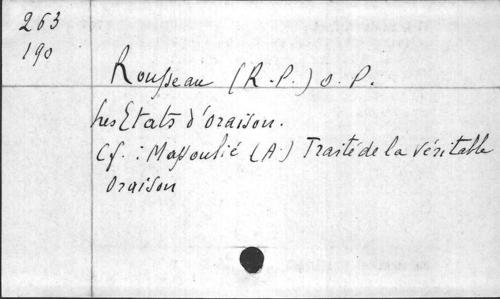 263
190
Rousseau (R.P.) o.P.
Les Etats d'oraison.
Cf. : Massoulié (A.) Traité de la véritable
Oraison